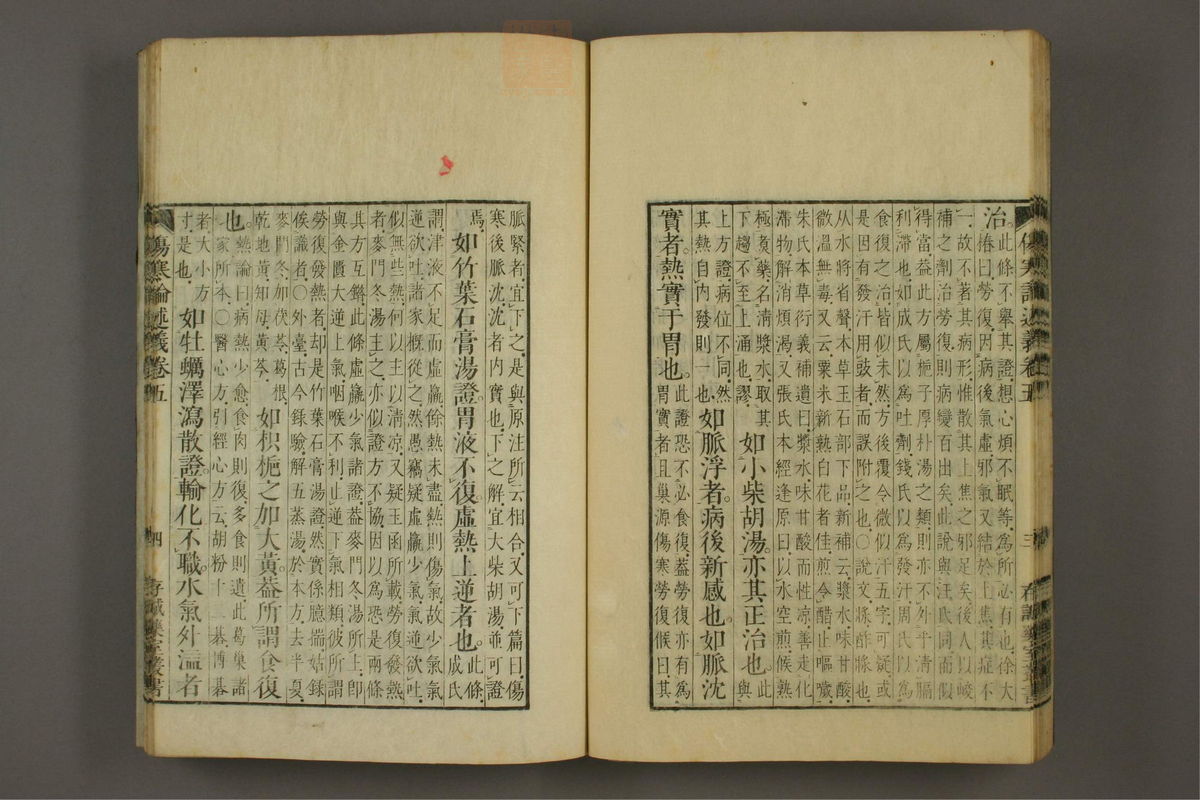 治。此條不舉其證。想心煩不眠等。爲所必有也。徐大
椿曰。勞復。因病後氣虛。邪氣又結於上焦。其症不
一。故不著其病形。惟散其上焦之邪足矣。後人以峻
補之劑治勞復。則病變百出矣。此說與汪氏同。而似
得當。蓋此方屬梔子厚朴湯之類。則亦不外乎清膈
利滯也。如成氏以爲吐劑。錢氏以爲發汗。周氏以爲
食復之治。皆似未然。方後覆令微似汗五字。可疑。或
是因有發汗用豉者。而誤附之也。○說文。將。酢將也。
从水將省聲。本草玉石部下品新補云。漿水。味甘酸。
微溫無毒。又云。粟米新熟白花者佳。煎令醋。止嘔噦。
朱氏本草衍義補遺曰。漿水。味甘酸而性涼。善走化
滯物。解消煩渴。又張氏本經逢原曰。以水空煎。候熟
極。煎藥。名清漿水。取其
下趨不至上涌也。謬。如小柴胡湯。亦其正治也。此與
上方證。病位不同。然
其熱自內發則一也。如脈浮者。病後新感也。如脈沈
實者。熱實于胃也。此證恐不必食復。蓋勞復亦有爲
胃實者。且巢源傷寒勞復候曰。其
傷寒論述義卷五 三 存誠藥室叢書
脈緊者。宜下之。是與原注所云相合。又可下篇曰。傷
寒後脈沈。沈者內實也。下之解。宜大柴胡湯。並可證
焉。如竹葉石膏湯證。胃液不復。虛熱上逆者也。此條。成氏
謂。津液不足而虛羸。餘熱未盡。熱則傷氣。故少氣氣
逆欲吐。諸家概從之。然愚竊疑虛羸少氣。氣逆欲吐。
似無些熱。何以主以清涼。又疑玉函所載勞復發熱
者。麥門冬湯主之。亦似證方不協。因以爲恐是兩條
其方互錯。此條虛羸少氣諸證。蓋麥門冬湯所主。卽
與金匱大逆上氣。咽喉不利。止逆下氣相類。彼所謂
勞復發熱者。却是竹葉石膏湯證。然實係臆揣。姑錄
俟識者。○外臺。古今錄驗。解五蒸湯。於本方。去半夏。
麥門冬。加茯苓。葛根。
乾地黃。知母。黃芩。如枳梔之加大黃。蓋所謂食復
也。熱論曰。病熱少愈。食肉則復。多食則遺。此葛巢諸
家所本。○醫心方引經心方云。胡粉十二棊。博棊
者。大小方
寸。是也。如牡蠣澤瀉散證。輸化不職。水氣外溢者
傷寒論述義卷五 四 存誠藥室叢書